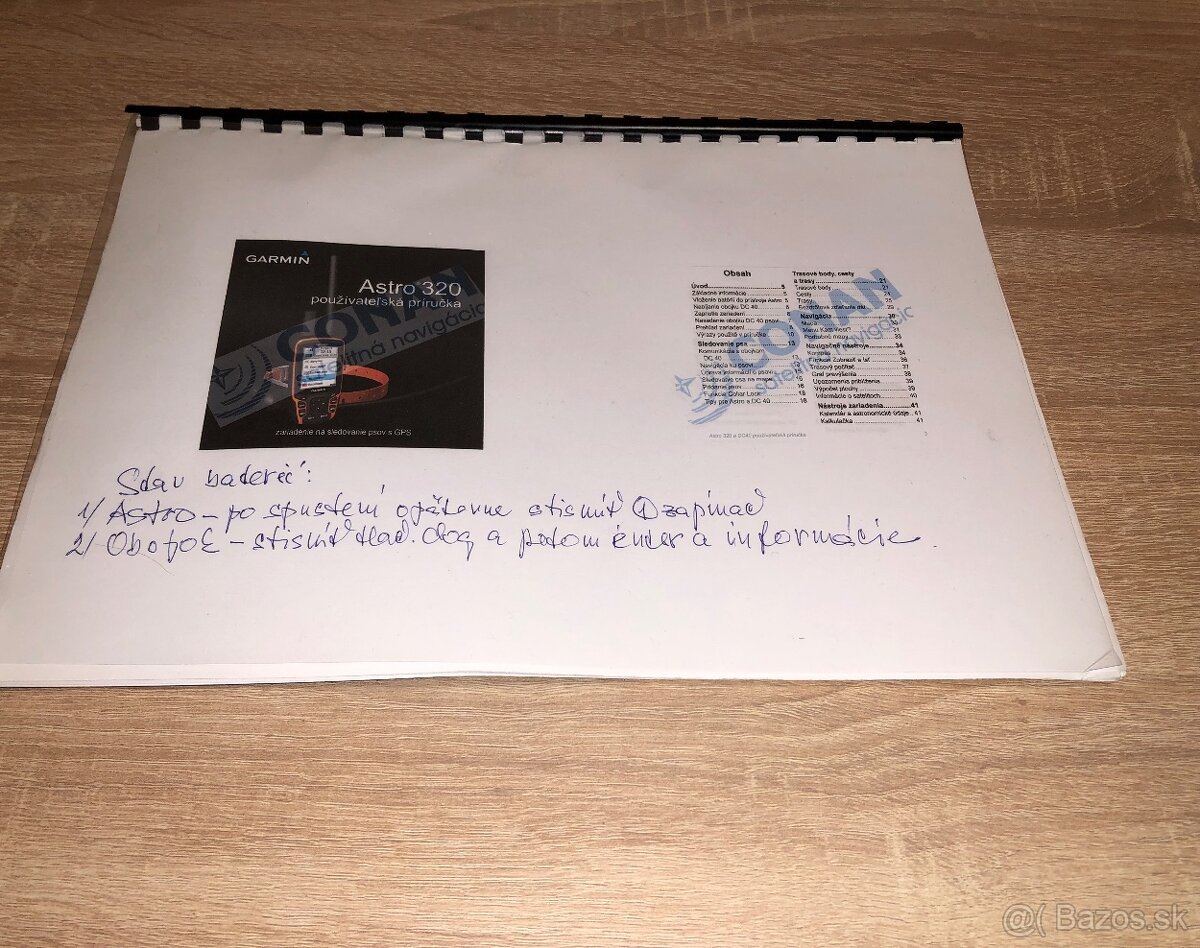 GARMIN
Astro 320
používateľská príručka
CONAN
satelitná navigácia
zariadenie na sledovanie psov s GPS
Obsah
Úvod 5
Základné informácie 5
Vloženie batérií do prístroja Astro 5
Nabíjanie obojku DC 40
Zapnutie zariadení
Nasadenie obojku DC 40 psovi
Prehľad zariadení 8
Výrazy použité v príručke 10
Sledovanie psa 13
Komunikácia s obojkom
DC 40 13
Navigácia ku psovi
Úprava informácií o psovi
Sledovanie psa na mape 15
Pridanie psov 16
Funkcia Collar Lock 18
Tipy pre Astro a DC 40 18
Trasové body, cesty
a trasy 21
Trasové body 21
Cesty
Trasy 25
Bezdrôtové zdieľanie dát
Navigácia 30
Mapa
Menu Kam viesť?
Podrobné mapy
Navigačné nástroje 34
Kompas 34
Funkcia Zobraziť a Ísť 36
Trasový počítač 37
Graf prevýšenia 38
Upozornenia priblíženia 39
Výpočet plochy 39
Informácie o satelitoch 40
Nástroje zariadenia 41
Kalendár a astronomické údaje 41
Kalkulačka 41
CONAN
satelitná navigácia
Astro 320 a DC40 používateľská príručka
3
Stav baterií:
1/ Astro – po spustení opätovne stisnúť zapínač
2/ Obojok – stisnúť tlač. dog a potom enter a informácie.
@( Bazos.sk